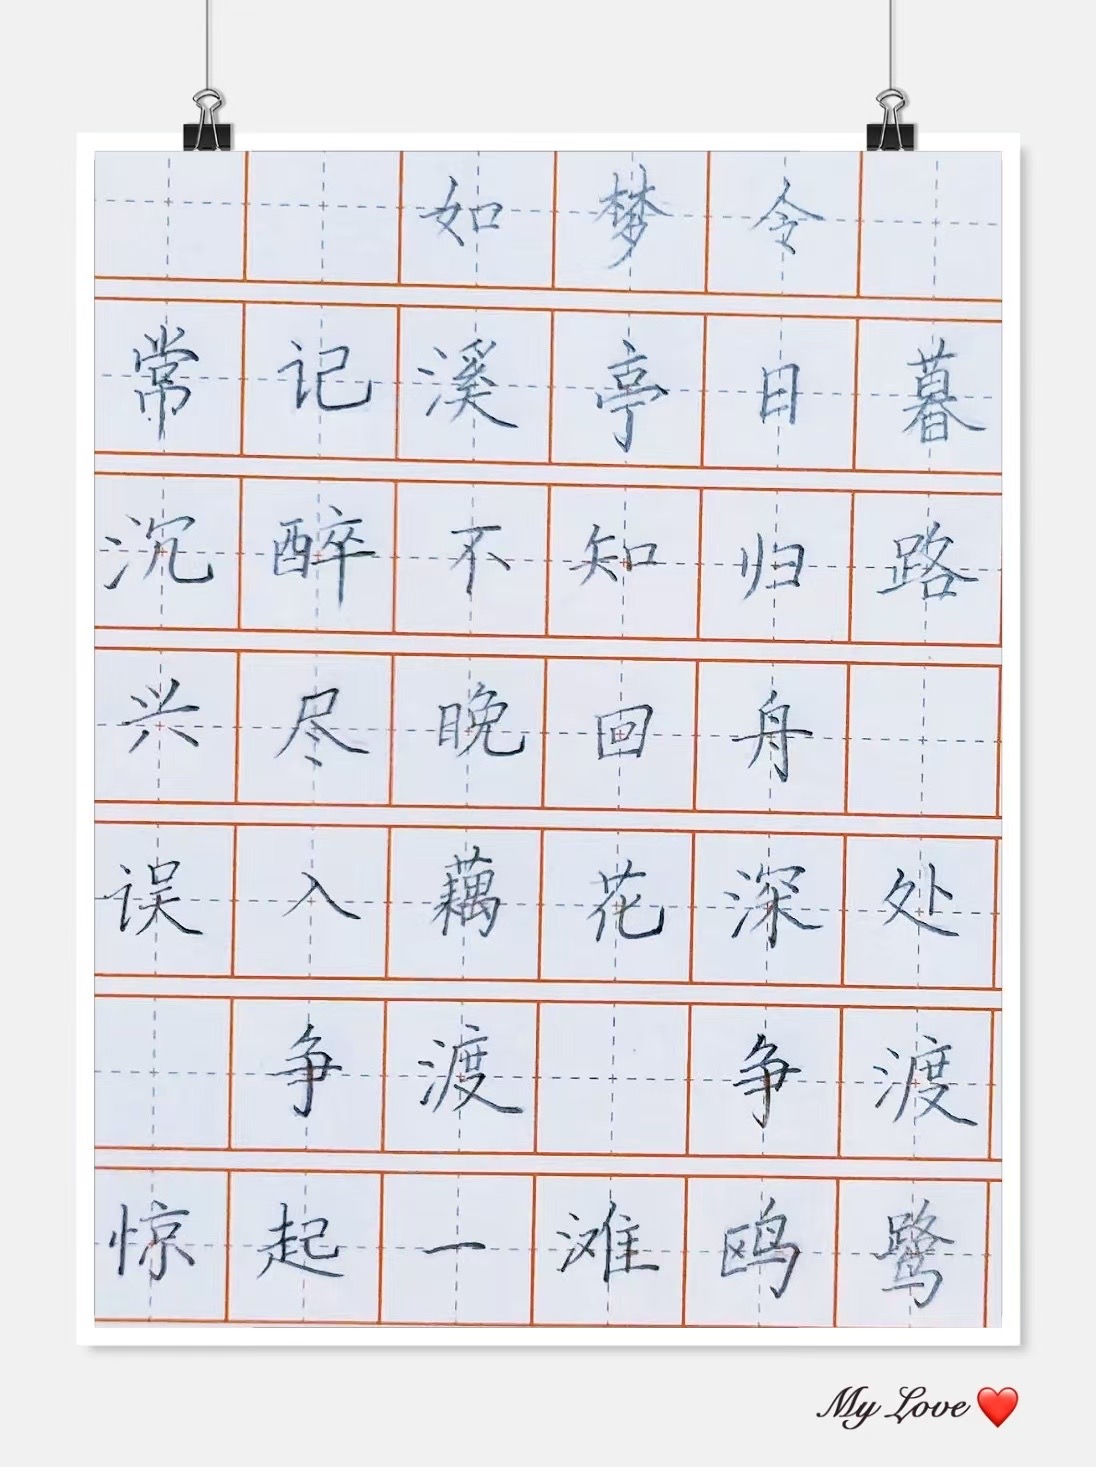 如梦令
常记溪亭日暮
沉醉不知归路
兴尽晚回舟
误入藕花深处
争渡 争渡
惊起一滩鸥鹭
My Love ❤️